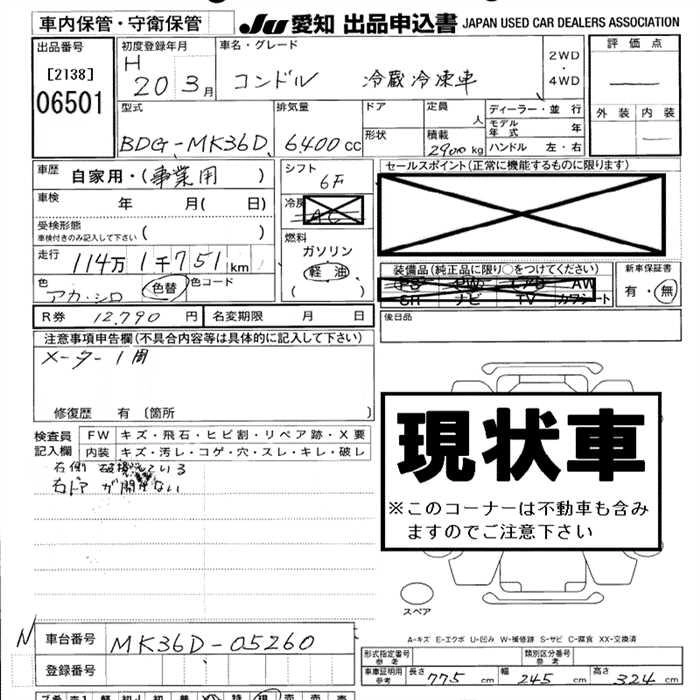 車内保管・守衛保管
JU 愛知 出品申込書 JAPAN USED CAR DEALERS ASSOCIATION
出品番号
[2138]
06501
初度登録年月
H 20 3月
車名・グレード
コンドル 冷蔵冷凍車
2WD
・
4WD
評価点
外装 内装
型式
BDG-MK36D
排気量
6,400 cc
ドア
形状
定員 人
積載 2900 kg
ディーラー・並行
モデル年式 年
ハンドル 左・右
車歴 自家用・(事業用 )
車検 年 月( 日)
受検形態
車検付きのみ記入して下さい ( )
走行 114万1千751km
色 アカ・シロ 色替 色コード
シフト
6F
冷房
AC
燃料
ガソリン
軽油
( )
セールスポイント(正常に機能するものに限ります)
装備品(純正品に限り○をつけてください)
PS PW エアB AW
SR ナビ TV カワシート
新車保証書
有・無
R券 12,790 円 名変期限 月 日
後日品
注意事項申告欄(不具合内容等は具体的に記入して下さい)
メーター1周
修復歴 有〔箇所 〕
検査員記入欄
FW キズ・飛石・ヒビ割・リペア跡・X要
内装 キズ・汚レ・コゲ・穴・スレ・キレ・破レ
右側 破損している
右ドアが開かない
現状車
※このコーナーは不動車も含み
ますのでご注意下さい
スペア
A-キズ E-エクボ U-凹み W-補修跡 S-サビ C-腐食 XX-交換済
N 車台番号 MK36D-05260
登録番号
形式指定番号 参考
類別区分番号 参考
車庫証明用 参考 長さ 775 cm 幅 245 cm 高さ 324 cm